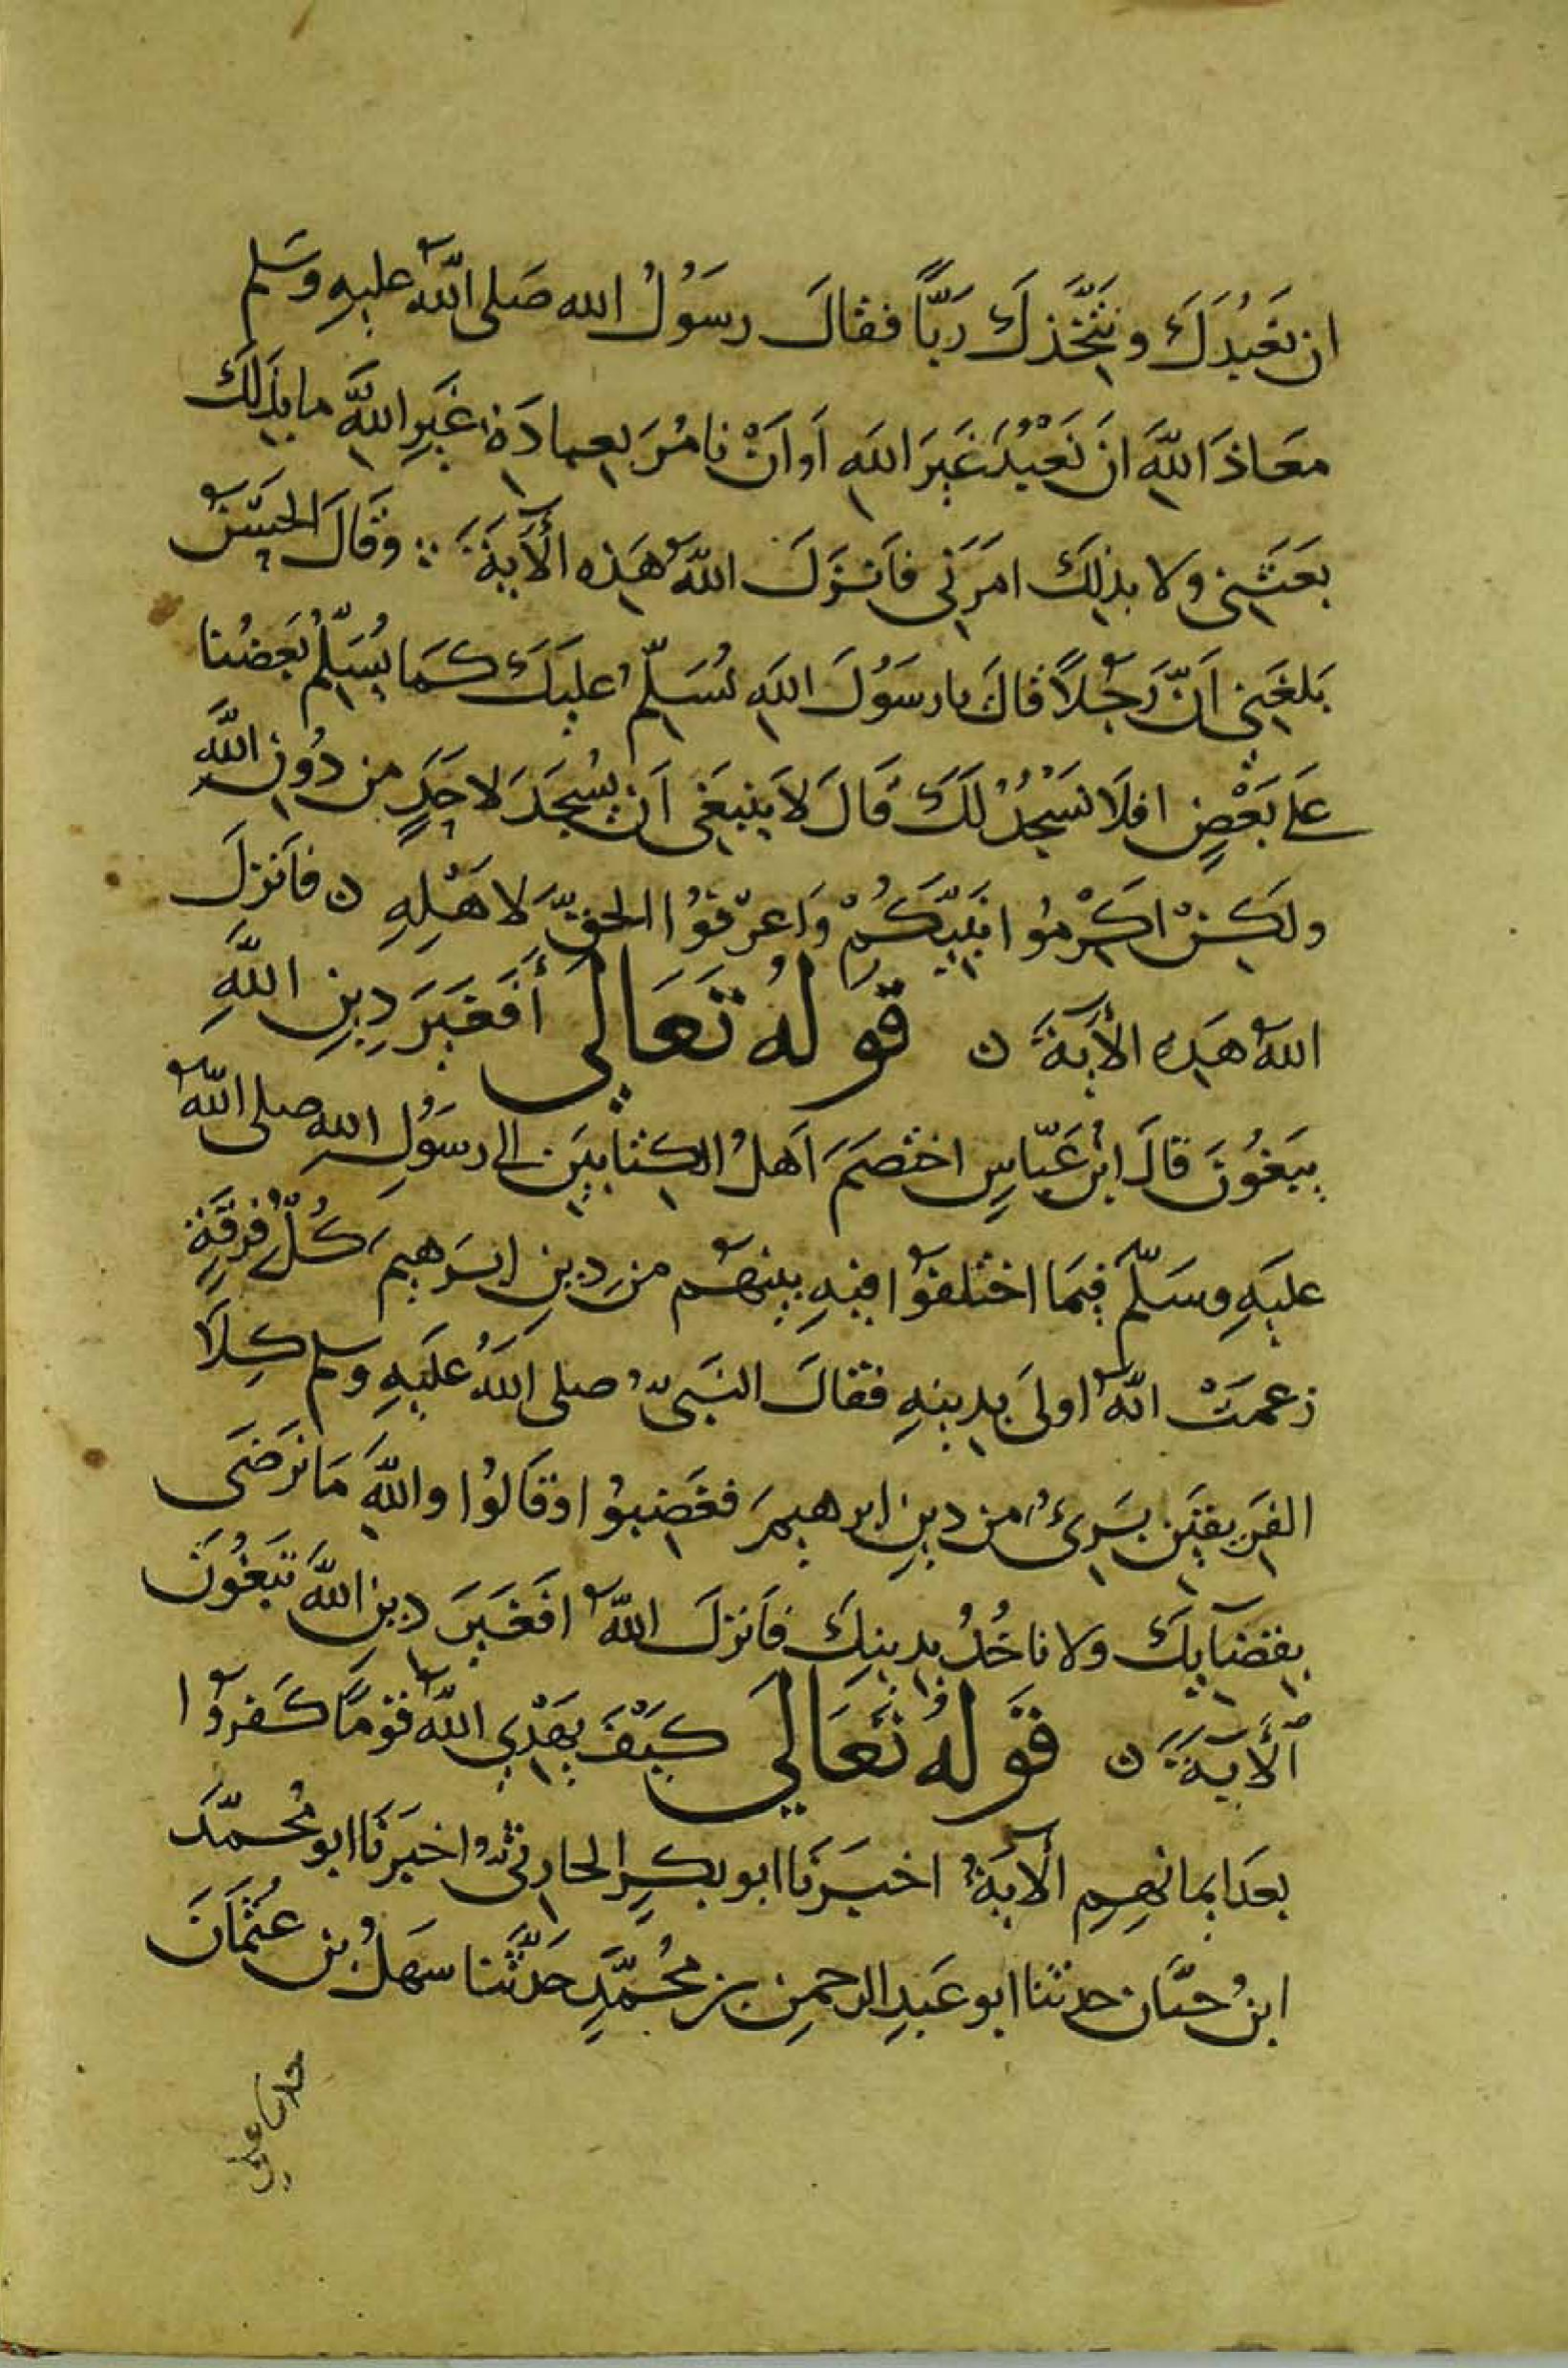 ان نَعْبُدَكَ ونتَّخذكَ رَبًّا فقالَ رسوُلُ الله صَلى اللهُ عليهِ وسَلم
معَاذَ اللهِ انَ نَعْبُدَ غَيرَ اللهِ اَو اَنْ نامُرَ بعبادَةِ غَيرِ اللهِ ما بذلك
بعَثَنِي ولا بذلِكَ امَرَنِي فاَنزَلَ اللهُ هَذِه الآيَةَ وَقَالَ الحَسَنُ
بَلغَنِي اَنَّ رَجُلاً قالَ يا رسَوُلَ اللهِ نُسَلِّمُ عليكَ كمَا يُسَلِّمُ بَعضُنا
عَلى بَعْضٍ افلَا نسَجُدُ لَكَ قَالَ لاَ ينبغَي اَن يُسجَدَ لاحَدٍ من دُونِ اللهِ
ولَكِنْ اكَرْمُوا نَبيَّكُمْ وَاعرفوُا الحقَّ لاهَلِهِ ن فاَنزلَ
اللهُ هَذِه الآيَةَ ن قَولهُ تَعَالَى أَفَغَيَرَ دِينِ اللهِ
يَبغُونَ قالَ ابْن عَبّاسِ اختصَمَ اَهلُ الكِتابَينِ الى رسوُلِ الله صلى اللهُ
عليَهِ وسَلّم فيمَا اختلفوُا فيهِ بينهُم من دِينِ ابرَهيمَ كُلُّ فِرقَةٍ
زعمَتْ انهُ اولىَ بدينهِ فقالَ النبَيُّ صلى اللهُ علَيهِ وسلم كِلَا
الفَرِيقَين بَرِىءٌ من دِينِ ابرهيمَ فغَضِبوُا وقَالوُا واللهِ مَا نَرضَى
بقضَايِكَ ولا ناخُذُ بدِينِكَ فاَنزلَ اللهُ افَغَيَرَ دِينِ اللهِ تَبَغُونَ
الآيَةَ ن قَولهُ تَعَالَى كيَفَ يهَدْيِ اللهُ قومًا كَفروُا
بعَد ايمانهِمِ الآيَةَ اخبَرَنَا ابو بكرٍ الحارثيُ اخبَرَنَا ابو مُحمّدَ
ابنُ حيّان حدثنا ابو عَبدِ الرحمنِ بن مُحمّدٍ حَدَّثَنا سَهلُ بن عُثمَانَ
حدثنا علي